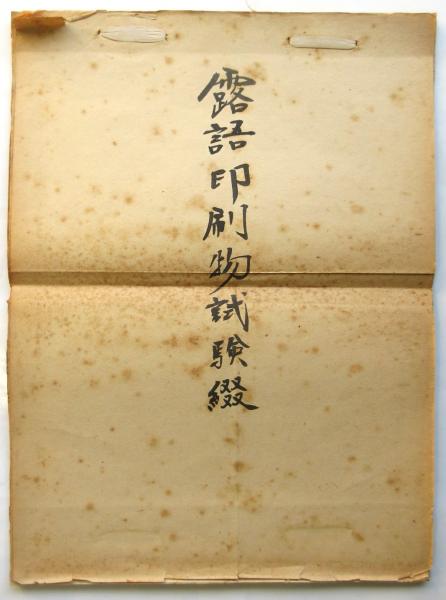 露語印刷物試験綴